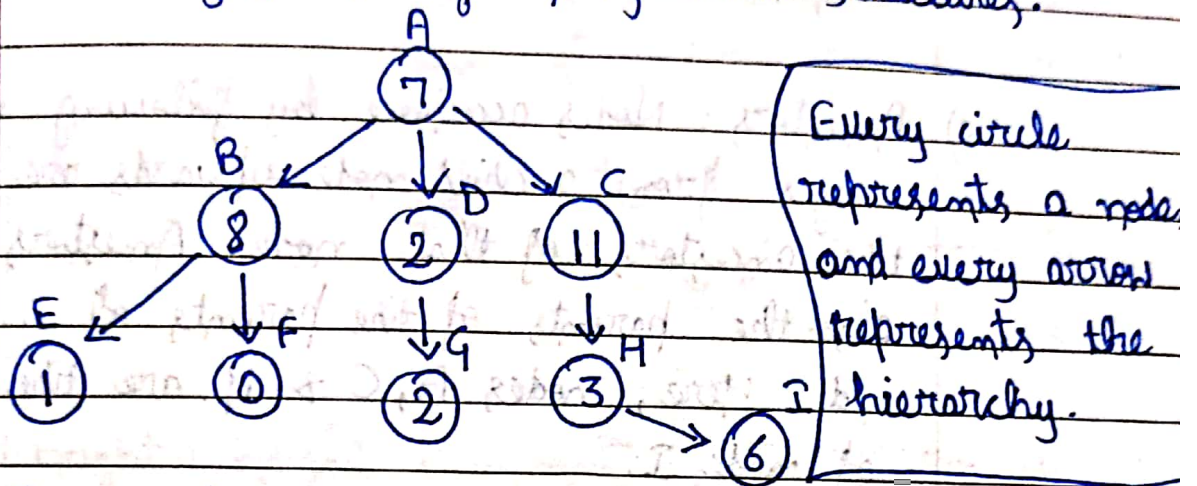 A
7
B
D
C
8
2
11
E
F
G
H
1
0
2
3
I
6
Every circle
represents a node,
and every arrow
represents the
hierarchy.